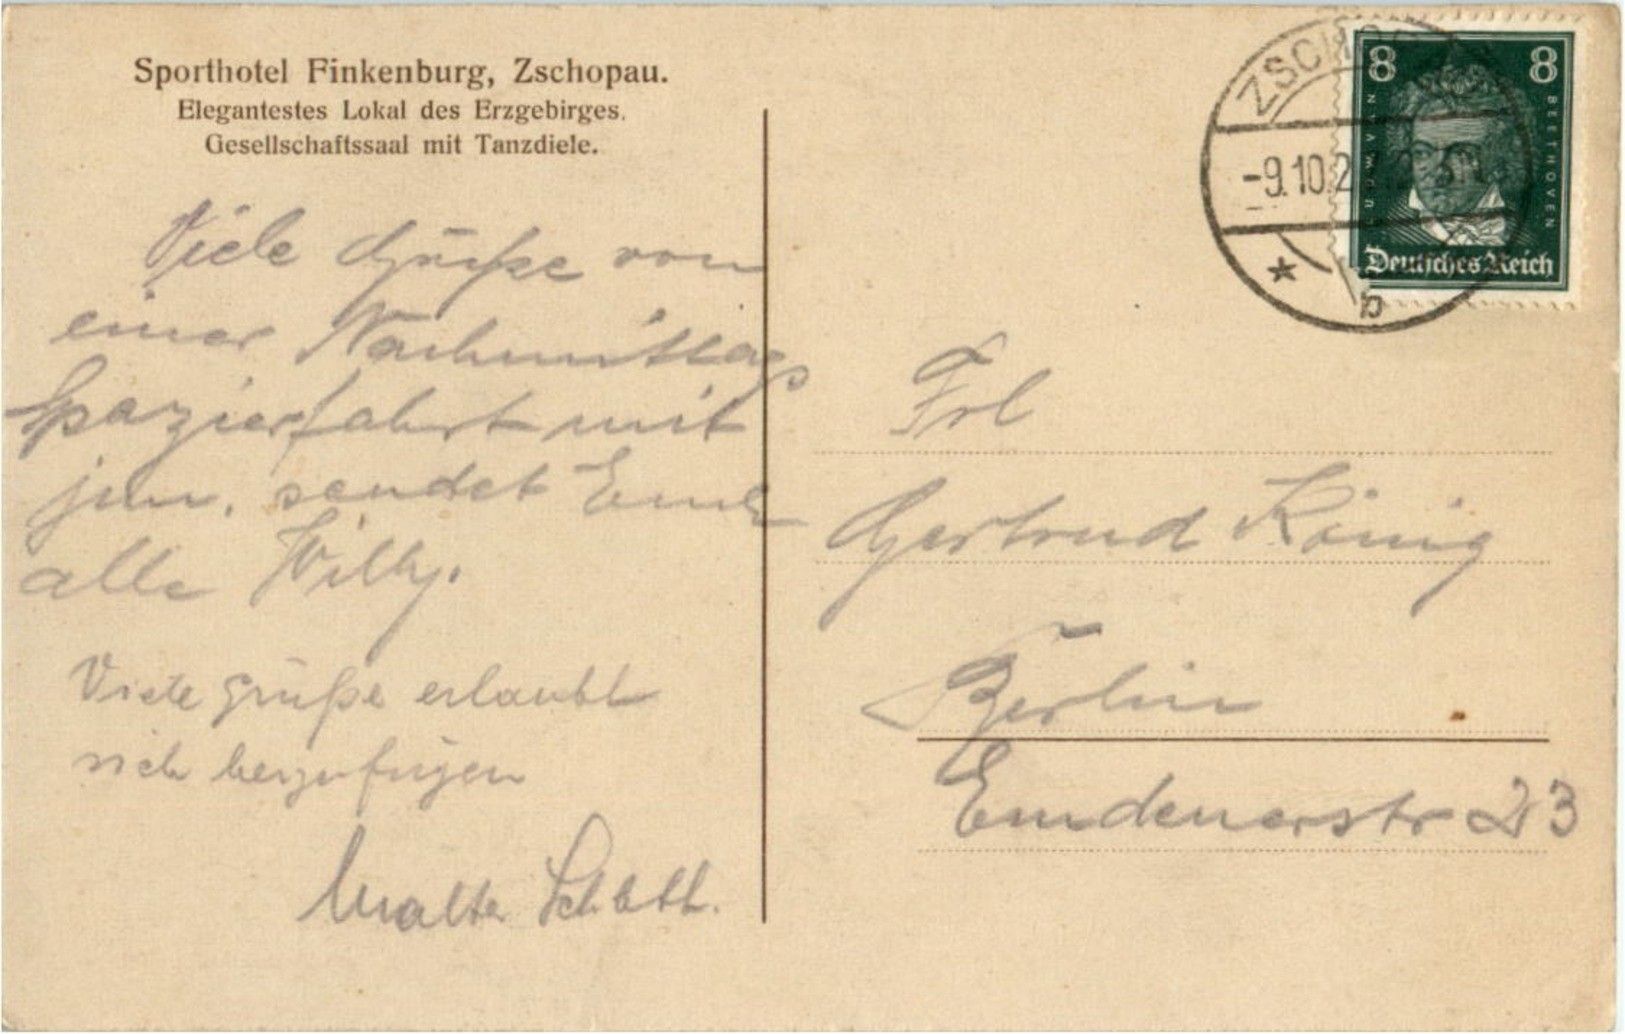 Sporthotel Finkenburg, Zschopau.
Elegantestes Lokal des Erzgebirges.
Gesellschaftssaal mit Tanzdiele.
Viele Grüsse von
einer Nachmittags
Spazierfahrt mit
jun. sendet Euch
alle Willy.
Viele Grüße erlaubt
sich beizufügen
Walter
ZSCHOPAU
-9.10.2
b
8 8
LUDW. VAN
BEETHOVEN
Deutsches Reich
Frl
Gertrud König
Berlin
Emdenerstr 23